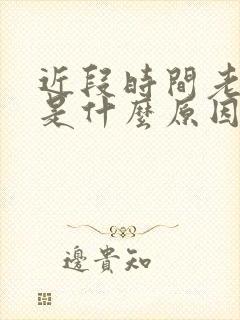 近段時間老
是什麼原因
邊貴知